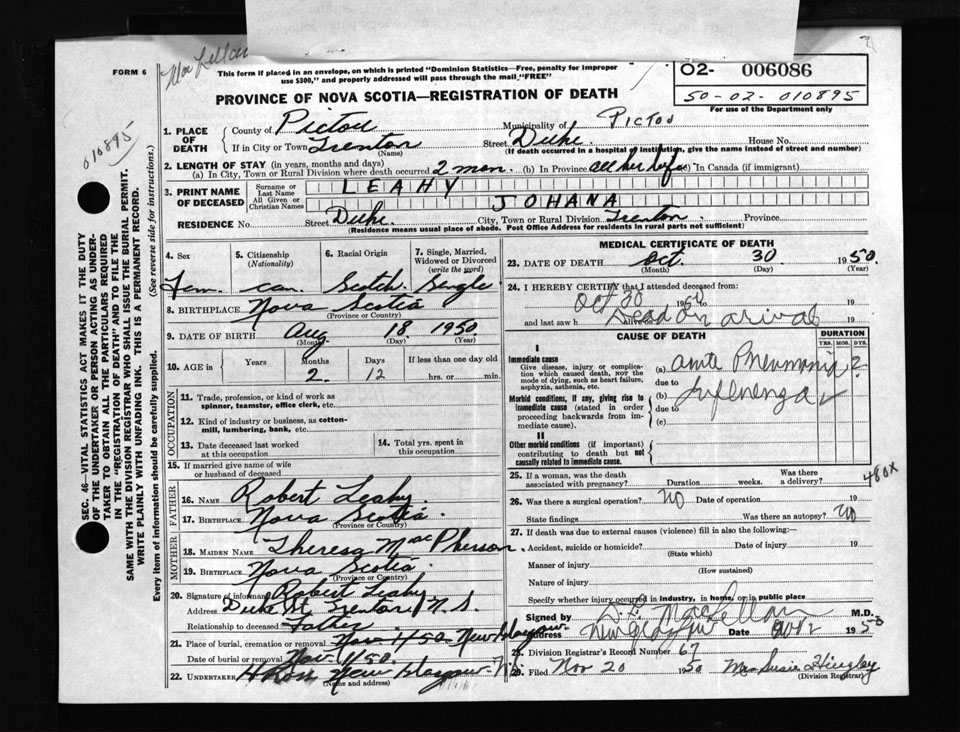 FORM 6
MacLellan
This form if placed in an envelope, on which is printed "Dominion Statistics—Free, penalty for improper
use $300," and properly addressed will pass through the mail "FREE"
O2- 006086
50-02-010895
For use of the Department only
PROVINCE OF NOVA SCOTIA—REGISTRATION OF DEATH
010895
1. PLACE OF DEATH
County of Pictou Municipality of Pictou
If in City or Town Trenton Street Duke House No.
(Name) (If death occurred in a hospital or institution, give the name instead of street and number)
2. LENGTH OF STAY (in years, months and days)
(a) In City, Town or Rural Division where death occurred 2 mon. (b) In Province all her life (c) In Canada (if immigrant)
3. PRINT NAME OF DECEASED
Surname or Last Name LEAHY
All Given or Christian Names JOHANA
RESIDENCE No. Street Duke City, Town or Rural Division Trenton. Province
(Residence means usual place of abode. Post Office Address for residents in rural parts not sufficient)
4. Sex 5. Citizenship (Nationality) 6. Racial Origin 7. Single, Married, Widowed or Divorced (write the word)
Fem. Can. Scotch Single
8. BIRTHPLACE Nova Scotia
(Province or Country)
9. DATE OF BIRTH Aug 18 1950
(Month) (Day) (Year)
10. AGE in Years Months Days If less than one day old
2. 12 hrs. or min.
OCCUPATION
11. Trade, profession, or kind of work as
spinner, teamster, office clerk, etc.
12. Kind of industry or business, as cotton-
mill, lumbering, bank, etc.
13. Date deceased last worked at this occupation 14. Total yrs. spent in this occupation
15. If married give name of wife
or husband of deceased
FATHER
16. NAME Robert Leahy.
17. BIRTHPLACE Nova Scotia
(Province or Country)
MOTHER
18. MAIDEN NAME Theresa MacPherson.
19. BIRTHPLACE Nova Scotia
(Province or Country)
20. Signature of informant Robert Leahy
Address Duke St. Trenton N.S.
Relationship to deceased Father
21. Place of burial, cremation or removal Nov 1/50 New Glasgow
Date of burial or removal Nov. 1/50.
22. UNDERTAKER H Ross New Glasgow N.S.
(Name and address)
MEDICAL CERTIFICATE OF DEATH
23. DATE OF DEATH Oct. 30 1950.
(Month) (Day) (Year)
24. I HEREBY CERTIFY that I attended deceased from:
Oct 30 1950 19
and last saw h alive on Dead on arival 19
CAUSE OF DEATH DURATION
YRS. MOS. DYS.
I
Immediate cause
Give disease, injury or complica-
tion which caused death, not the
mode of dying, such as heart failure,
asphyxia, asthenia, etc.
(a) acute Pneumonia 2
due to
Morbid conditions, if any, giving rise to
immediate cause (stated in order
proceeding backwards from im-
mediate cause).
(b) Influenza
due to
(c)
II
Other morbid conditions (if important)
contributing to death but not
causally related to immediate cause.
25. If a woman, was the death associated with pregnancy? Duration weeks. Was there a delivery?
480X
26. Was there a surgical operation? NO Date of operation 19
State findings Was there an autopsy? NO
27. If death was due to external causes (violence) fill in also the following:—
Accident, suicide or homicide? Date of injury 19
(State which)
Manner of injury
(How sustained)
Nature of injury
Specify whether injury occurred in industry, in home, or in public place
Signed by MacLellan M.D.
Address New Glasgow Date Nov 2 1950
28. Division Registrar's Record Number 67
29. Filed Nov 20 1950 Mrs Susie Hingley
(Division Registrar)
SEC. 46—VITAL STATISTICS ACT MAKES IT THE DUTY
OF THE UNDERTAKER OR PERSON ACTING AS UNDER-
TAKER TO OBTAIN ALL THE PARTICULARS REQUIRED
IN THE "REGISTRATION OF DEATH" AND TO FILE THE
SAME WITH THE DIVISION REGISTRAR WHO SHALL ISSUE THE BURIAL PERMIT.
WRITE PLAINLY WITH UNFADING INK. THIS IS A PERMANENT RECORD.
Every item of information should be carefully supplied. (See reverse side for instructions.)